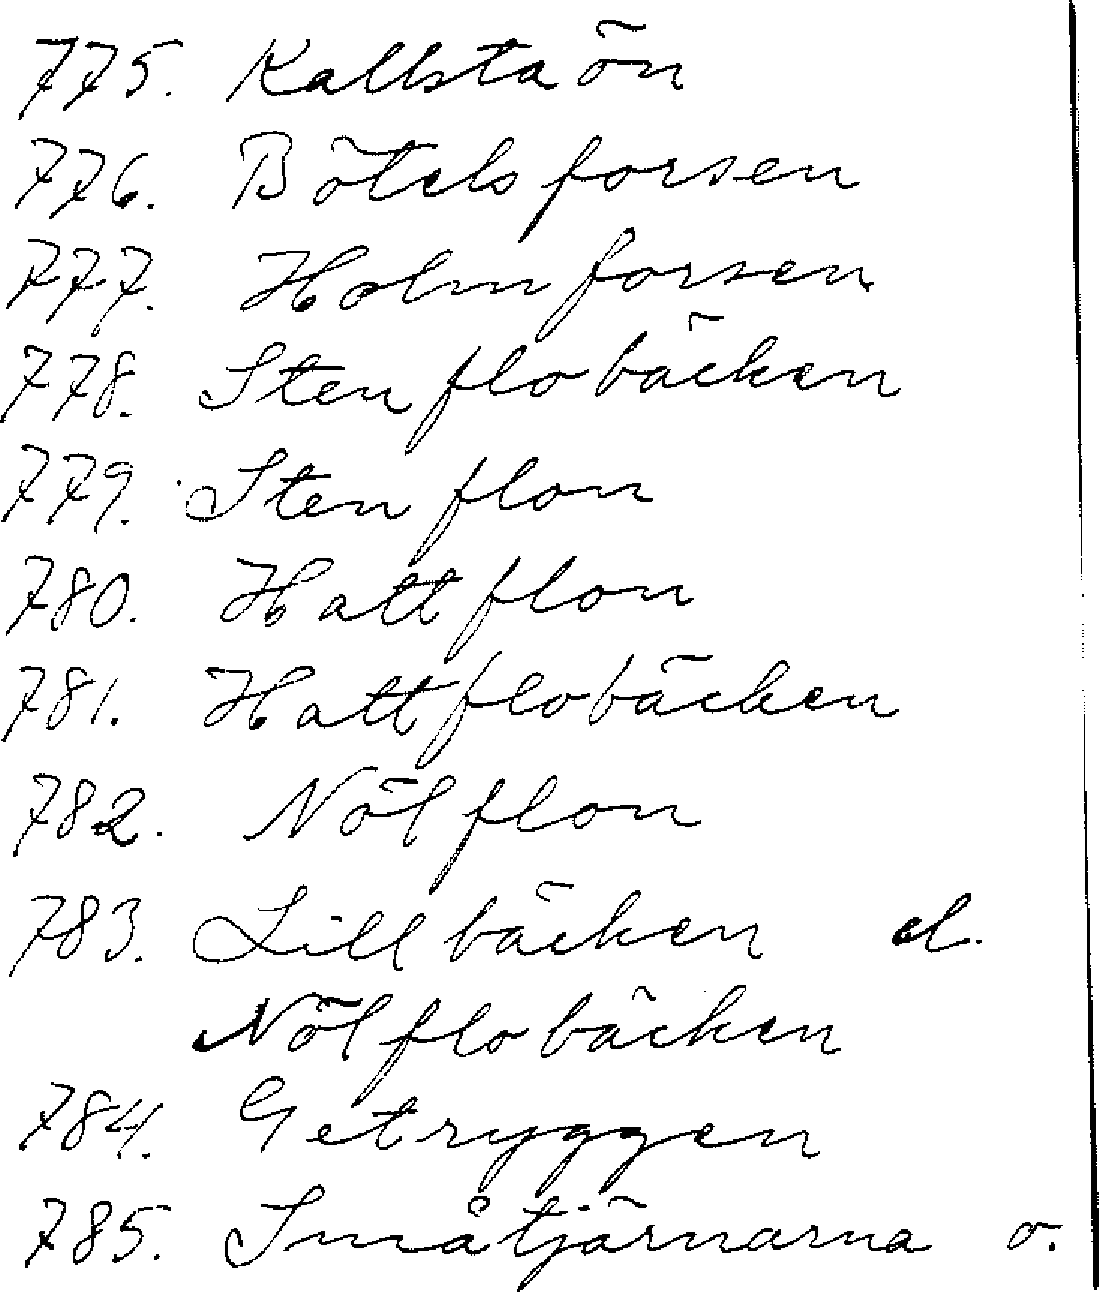 775. Kallstaön
776. Bötelsforsen
777. Holmforsen
778. Stenflobäcken
779. Stenflon
780. Hattflon
781. Hattflobäcken
782. Nölflon
783. Lillbäcken el.
Nölflobäcken
784. Getryggen
785. Småtjärnarna o.